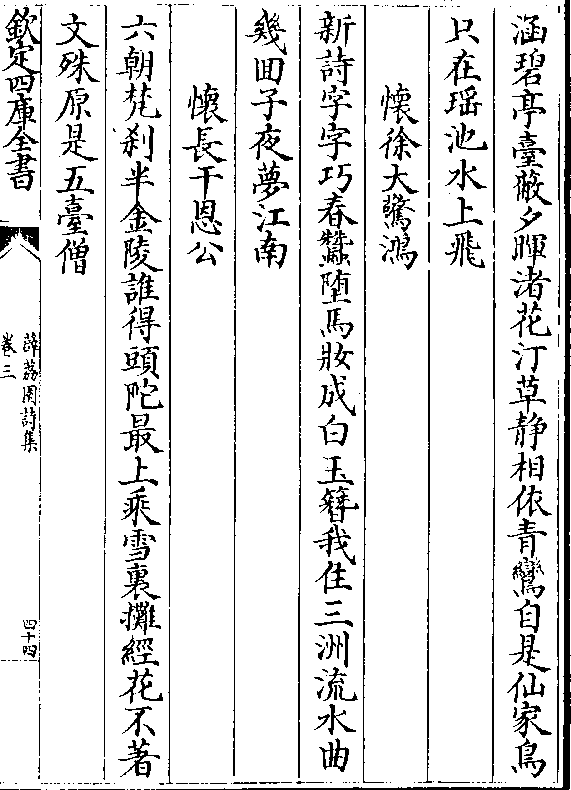 涵碧亭臺敞夕暉渚花汀草静相依青鸞自是仙家鳥
只在瑶池水上飛
懷徐大驚鴻
新詩字字巧春蠶墮馬妝成白玉簪我住三洲流水曲
幾回子夜夢江南
懷長干恩公
六朝梵刹半金陵誰得頭陀最上乘雪裏攤經花不著
文殊原是五臺僧
欽定四庫全書
薜荔園詩集
卷三
四十四